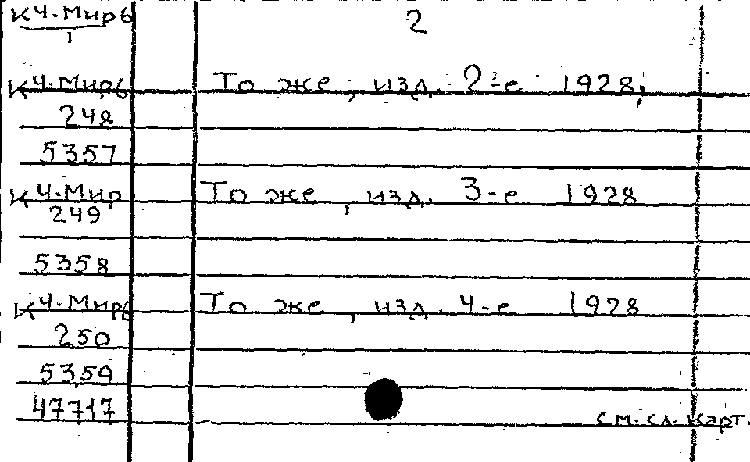 К Ч. Мир6 2
1
К Ч. Мир6 То же, изд. 2-е 1928;
248
5357
К Ч. Мир То же, изд. 3-е 1928
249
5358
К Ч. Мир6 То же, изд. 4-е 1928
250
5359
47717 см. сл. карт.